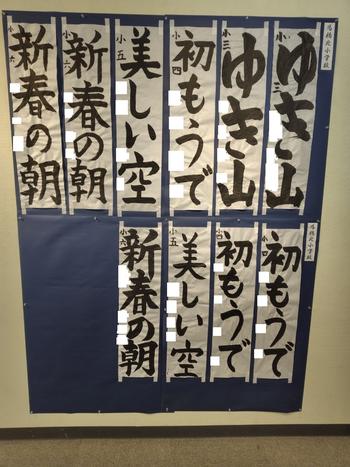 馬橋北小学校
ゆき山
小三
ゆき山
小三
初もうで
小四
美しい空
小五
新春の朝
小六
新春の朝
小六
馬橋北小学校
初もうで
小四
初もうで
小四
美しい空
小五
新春の朝
小六